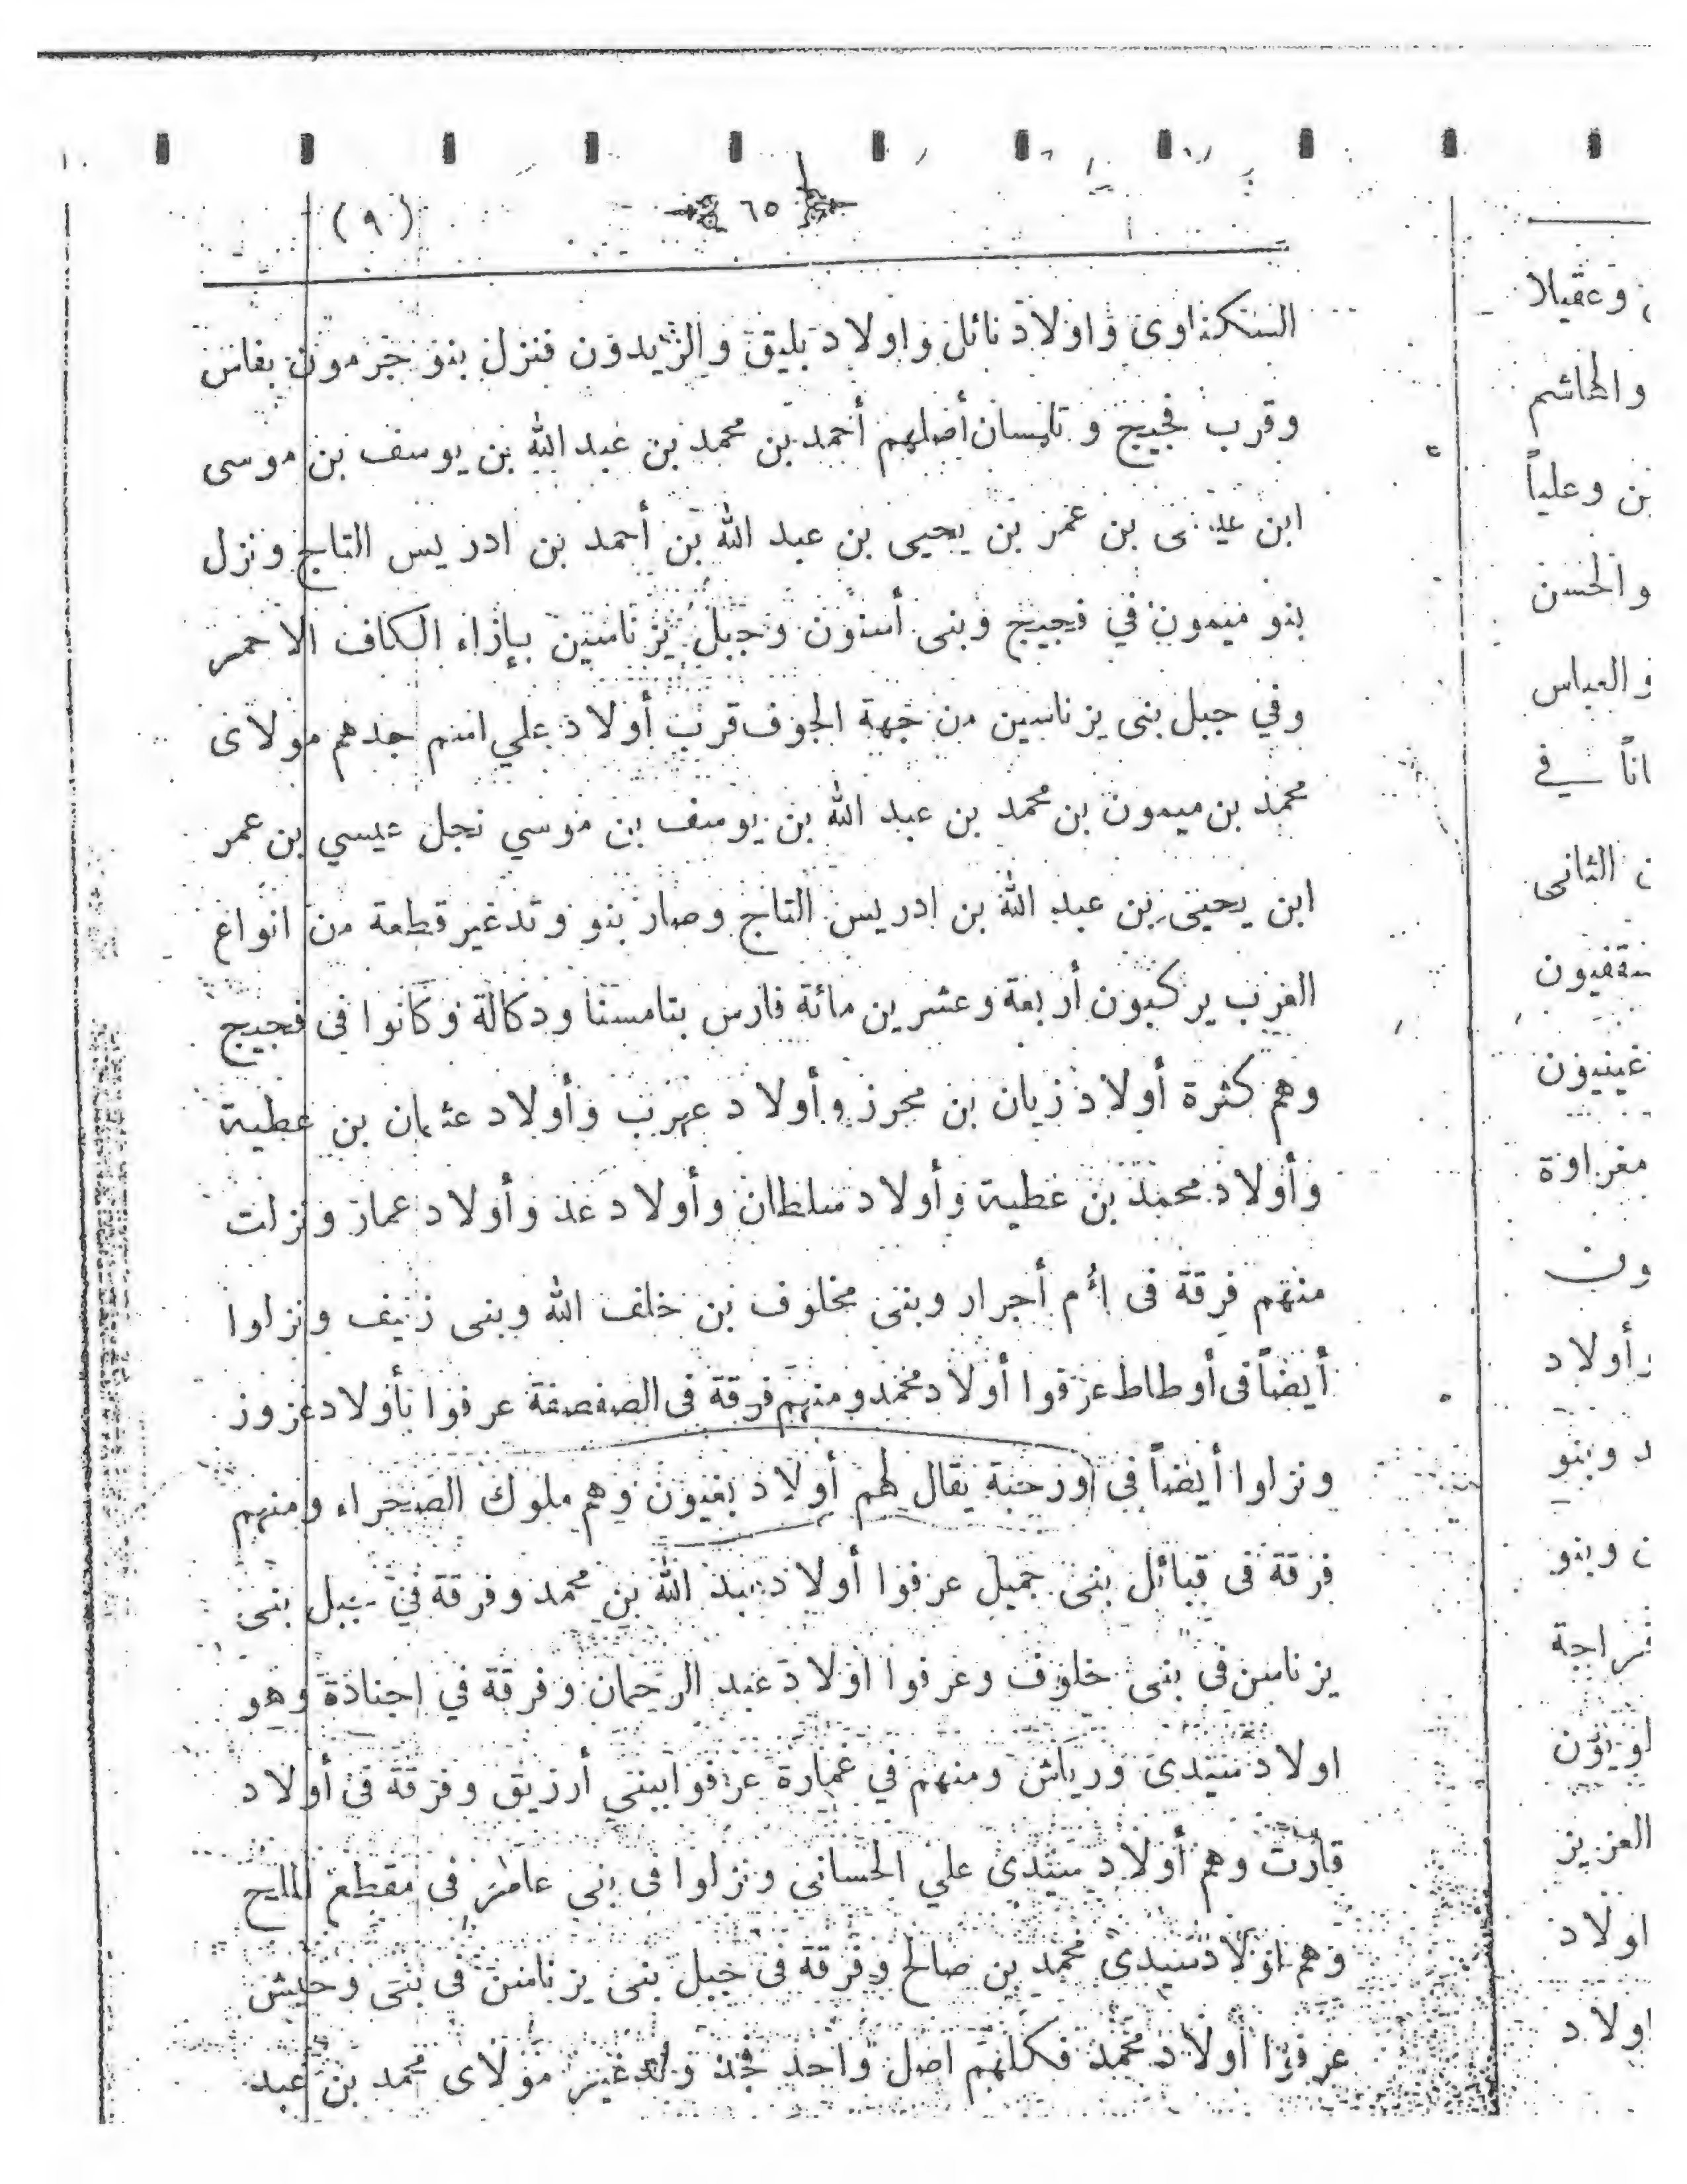 ٦٥ (٩)
السكناوى واولاد نائل واولاد بليق والزيدون فنزل بنو جرمون بفاس
وقرب فجيج و تلمسان أصلهم أحمد بن محمد بن عبد الله بن يوسف بن موسى
ابن عيسى بن عمر بن يحيى بن عبد الله بن أحمد بن ادريس التاج ونزل
بنو ميمون في فجيج وبنى أسنون وجبل يزناسين بإزاء الكاف الاحمر
وفي جبل بنى يزناسين من جهة الجوف قرب أولاد علي اسم جدهم مولاى
محمد بن ميمون بن محمد بن عبد الله بن يوسف بن موسي نجل عيسي بن عمر
ابن يحيى بن عبد الله بن ادريس التاج وصار بنو وتدغير قطعة من انواع
الغرب يركبون أربعة وعشرين مائة فارس بتامسنا ودكالة وكانوا فى فجيج
وهم كثرة أولاد زيان بن محرز وأولاد عرب وأولاد عثمان بن عطية
وأولاد محمد بن عطية وأولاد سلطان وأولاد عد وأولاد عمار ونزلت
منهم فرقة فى أم أجرار وبنى مخلوف بن خلف الله وبنى زنيف ونزلوا
أيضاً فى أوطاط عرفوا أولاد محمد ومنهم فرقة فى الصفصفة عرفوا بأولاد عزوز
ونزلوا أيضاً فى اورحبة يقال لهم أولاد بغيون وهم ملوك الصحراء ومنهم
فرقة فى قبائل بنى جميل عرفوا أولاد عبد الله بن محمد وفرقة في جبل بنى
يزناسن فى بنى خلوف وعرفوا اولاد عبد الرحمان وفرقة في اجنادة وهو
اولاد سيدى ورياش ومنهم في غمارة عرفوا ببني أرزيق وفرقة فى أولاد
قارت وهم أولاد سيدى علي الحسانى ونزلوا فى بنى عامر فى مقطع الملح
وهم اولاد سيدى محمد بن صالح وفرقة فى جبل بنى يزناسن فى بنى وحيش
عرفوا أولاد محمد فكلهم اصل واحد فخذ ولدغير مولاى محمد بن عبد
وعقيلا
والهاشم
بن وعلياً
والحسن
والعباس
اناً في
الثانى
غينيون
مغراوة
ون
وأولاد
د وبنو
ن وبنو
العزيز
اولاد
اولاد